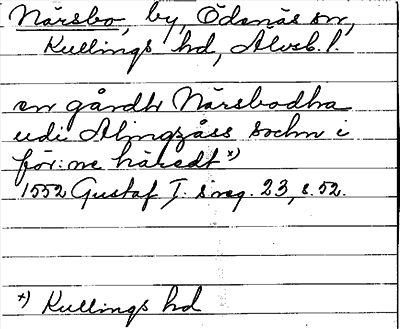 Närsbo, by, Ödenäs sn,
Kullings hd, Älvsb. l.
en gårdh Närsbodha
udi Alingzåss sochn i
för:ne häredt x)
1552 Gustaf I:s reg. 23, s. 52.
x) Kullings hd